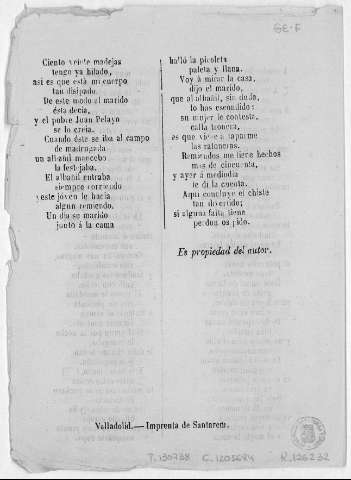 GE-F
Ciento veinte madejas
tengo ya hilado,
así es que está mi cuerpo
tan disipado.
De este modo al marido
ésta decia,
y el pobre Juan Pelayo
se lo creia.
Cuando éste se iba al campo
de madrugada
un albañil mancebo
la festejaba.
El albañil entraba
siempre corriendo
y este jóven le hacía
algun remiendo.
Un dia su marido
junto á la cama
halló la picoleta
paleta y llana.
Voy á mirar la casa,
dijo el marido,
que al albañil, sin duda,
lo has escondido:
su mujer le contesta,
calla tronera,
es que viene á taparme
las ratoneras.
Remiendos me tiene hechos
mas de cincuenta,
y ayer á mediodia
le dí la cuenta.
Aquí concluye el chiste
tan divertido;
si alguna falta tiene
perdon os pido.
Es propiedad del autor.
Valladolid.—Imprenta de Santaren.
T.130738 C.1203684 R.126232